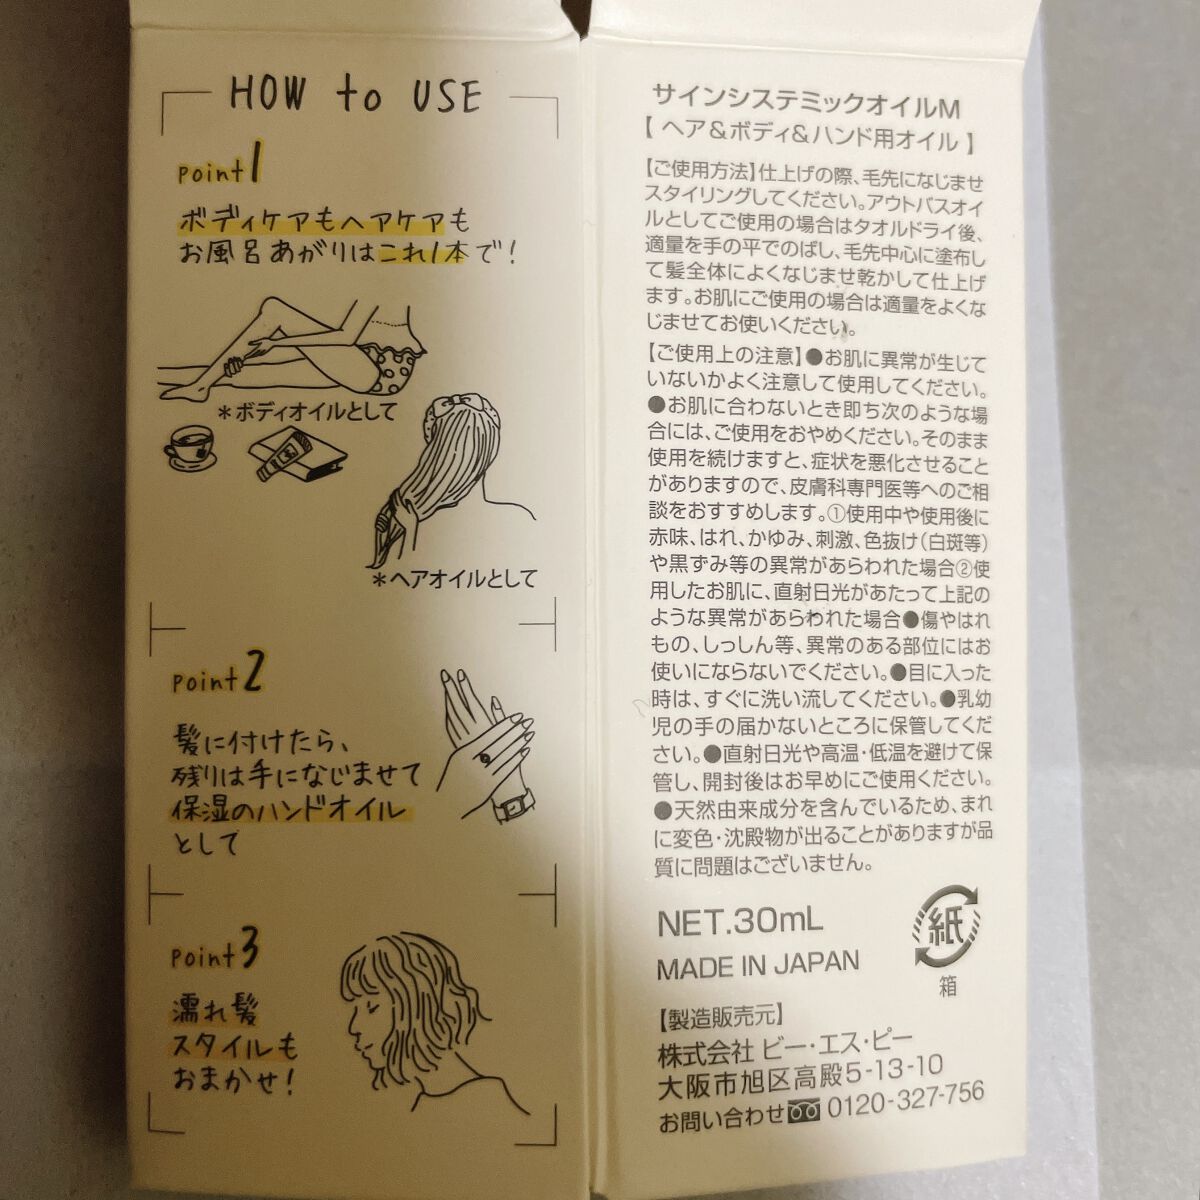 HOW to USE
point1
ボディケアもヘアケアも
お風呂あがりはこれ1本で!
*ボディオイルとして
*ヘアオイルとして
point2
髪に付けたら、
残りは手になじませて
保湿のハンドオイル
として
point3
濡れ髪
スタイルも
おまかせ!
サインシステミックオイルM
【 ヘア&ボディ&ハンド用オイル 】
【ご使用方法】仕上げの際、毛先になじませ
スタイリングしてください。アウトバスオイ
ルとしてご使用の場合はタオルドライ後、
適量を手の平でのばし、毛先中心に塗布し
て髪全体によくなじませ乾かして仕上げ
ます。お肌にご使用の場合は適量をよくな
じませてお使いください。
【ご使用上の注意】●お肌に異常が生じて
いないかよく注意して使用してください。
●お肌に合わないとき即ち次のような場
合には、ご使用をおやめください。そのまま
使用を続けますと、症状を悪化させること
がありますので、皮膚科専門医等へのご相
談をおすすめします。①使用中や使用後に
赤味、はれ、かゆみ、刺激、色抜け(白斑等)
や黒ずみ等の異常があらわれた場合②使
用したお肌に、直射日光があたって上記の
ような異常があらわれた場合●傷やはれ
もの、しっしん等、異常のある部位にはお
使いにならないでください。●目に入った
時は、すぐに洗い流してください。●乳幼
児の手の届かないところに保管してくだ
さい。●直射日光や高温・低温を避けて保
管し、開封後はお早めにご使用ください。
●天然由来成分を含んでいるため、まれ
に変色・沈殿物が出ることがありますが品
質に問題はございません。
NET.30mL
MADE IN JAPAN
紙
箱
【製造販売元】
株式会社 ビー・エス・ピー
大阪市旭区高殿5-13-10
お問い合わせ 0120-327-756